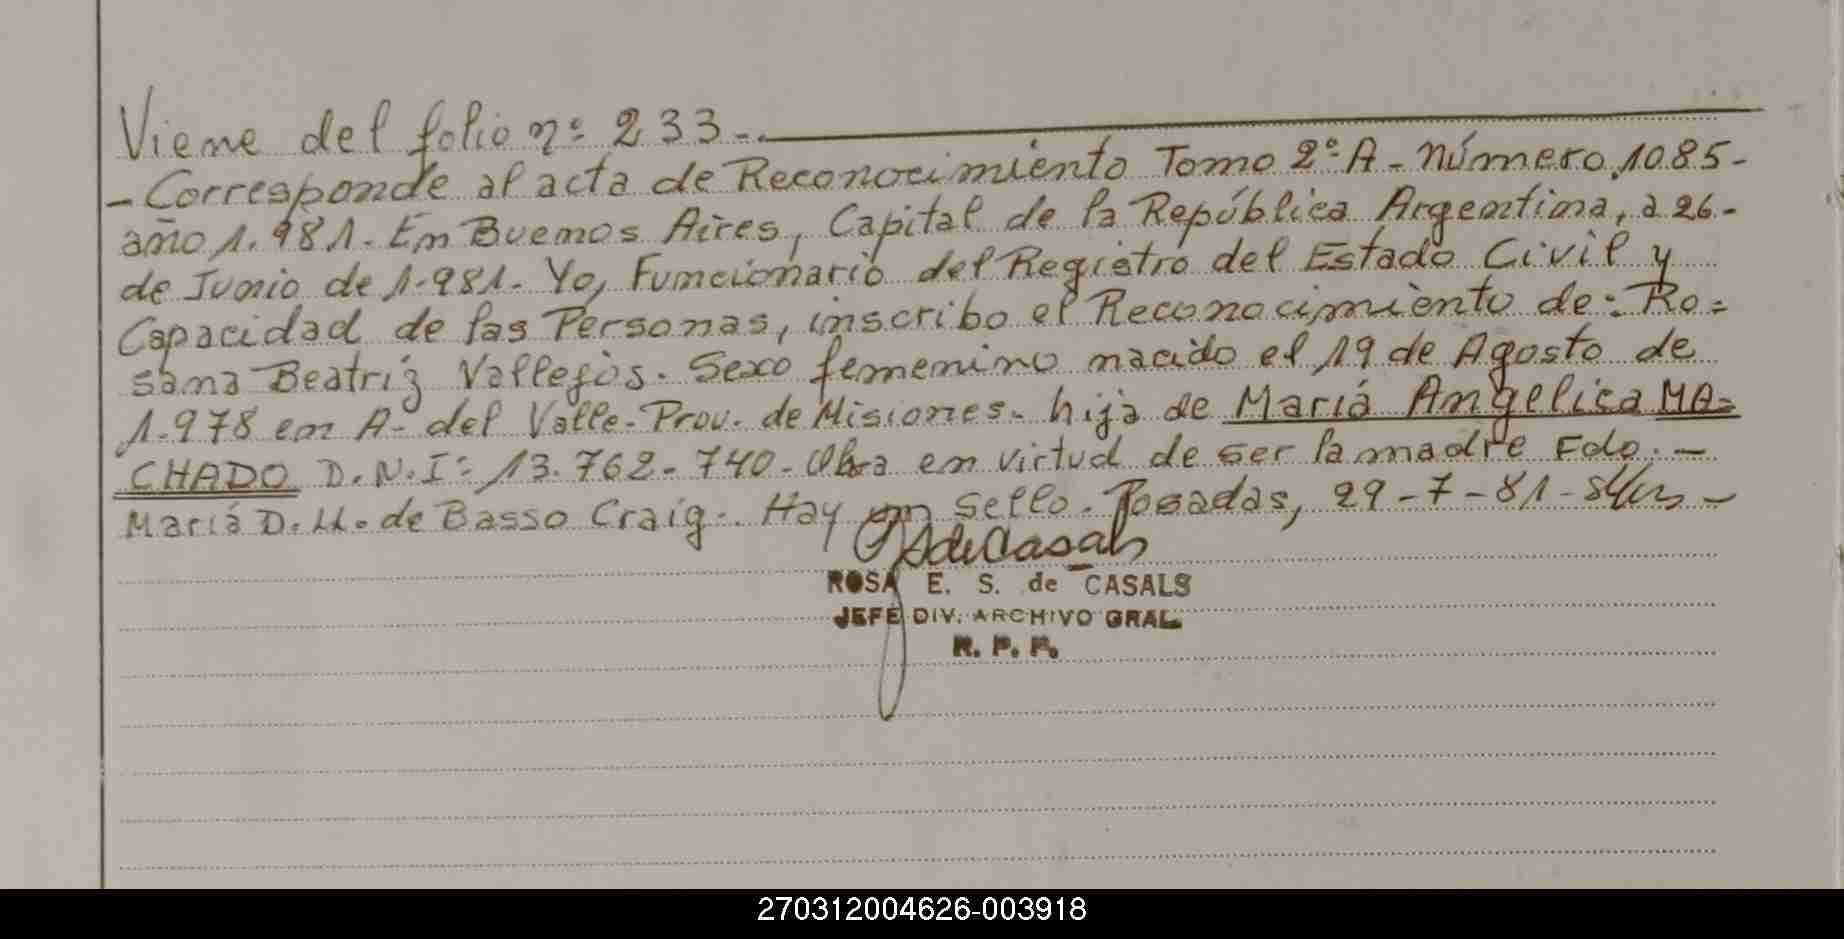 Viene del folio nº 233-.
- Corresponde al acta de Reconocimiento Tomo 2º A - Número 1085-
año 1.981. En Buenos Aires, Capital de la República Argentina, a 26.-
de Junio de 1.981. Yo, Funcionario del Registro del Estado Civil y
Capacidad de las Personas, inscribo el Reconocimiento de: Ro=
sana Beatriz Vallejos. Sexo femenino nacido el 19 de Agosto de
1.978 en A- del Valle- Prov. de Misiones- hija de Mariá Angelica MA=
CHADO D.N.Iº 13.762.740- Obra en virtud de ser la madre Fdo. -
Mariá D. Ll. de Basso Craig-. Hay un sello. Posadas, 29-7-81-
ROSA E. S. de CASALS
JEFE DIV. ARCHIVO GRAL.
R. P. P.
270312004626-003918